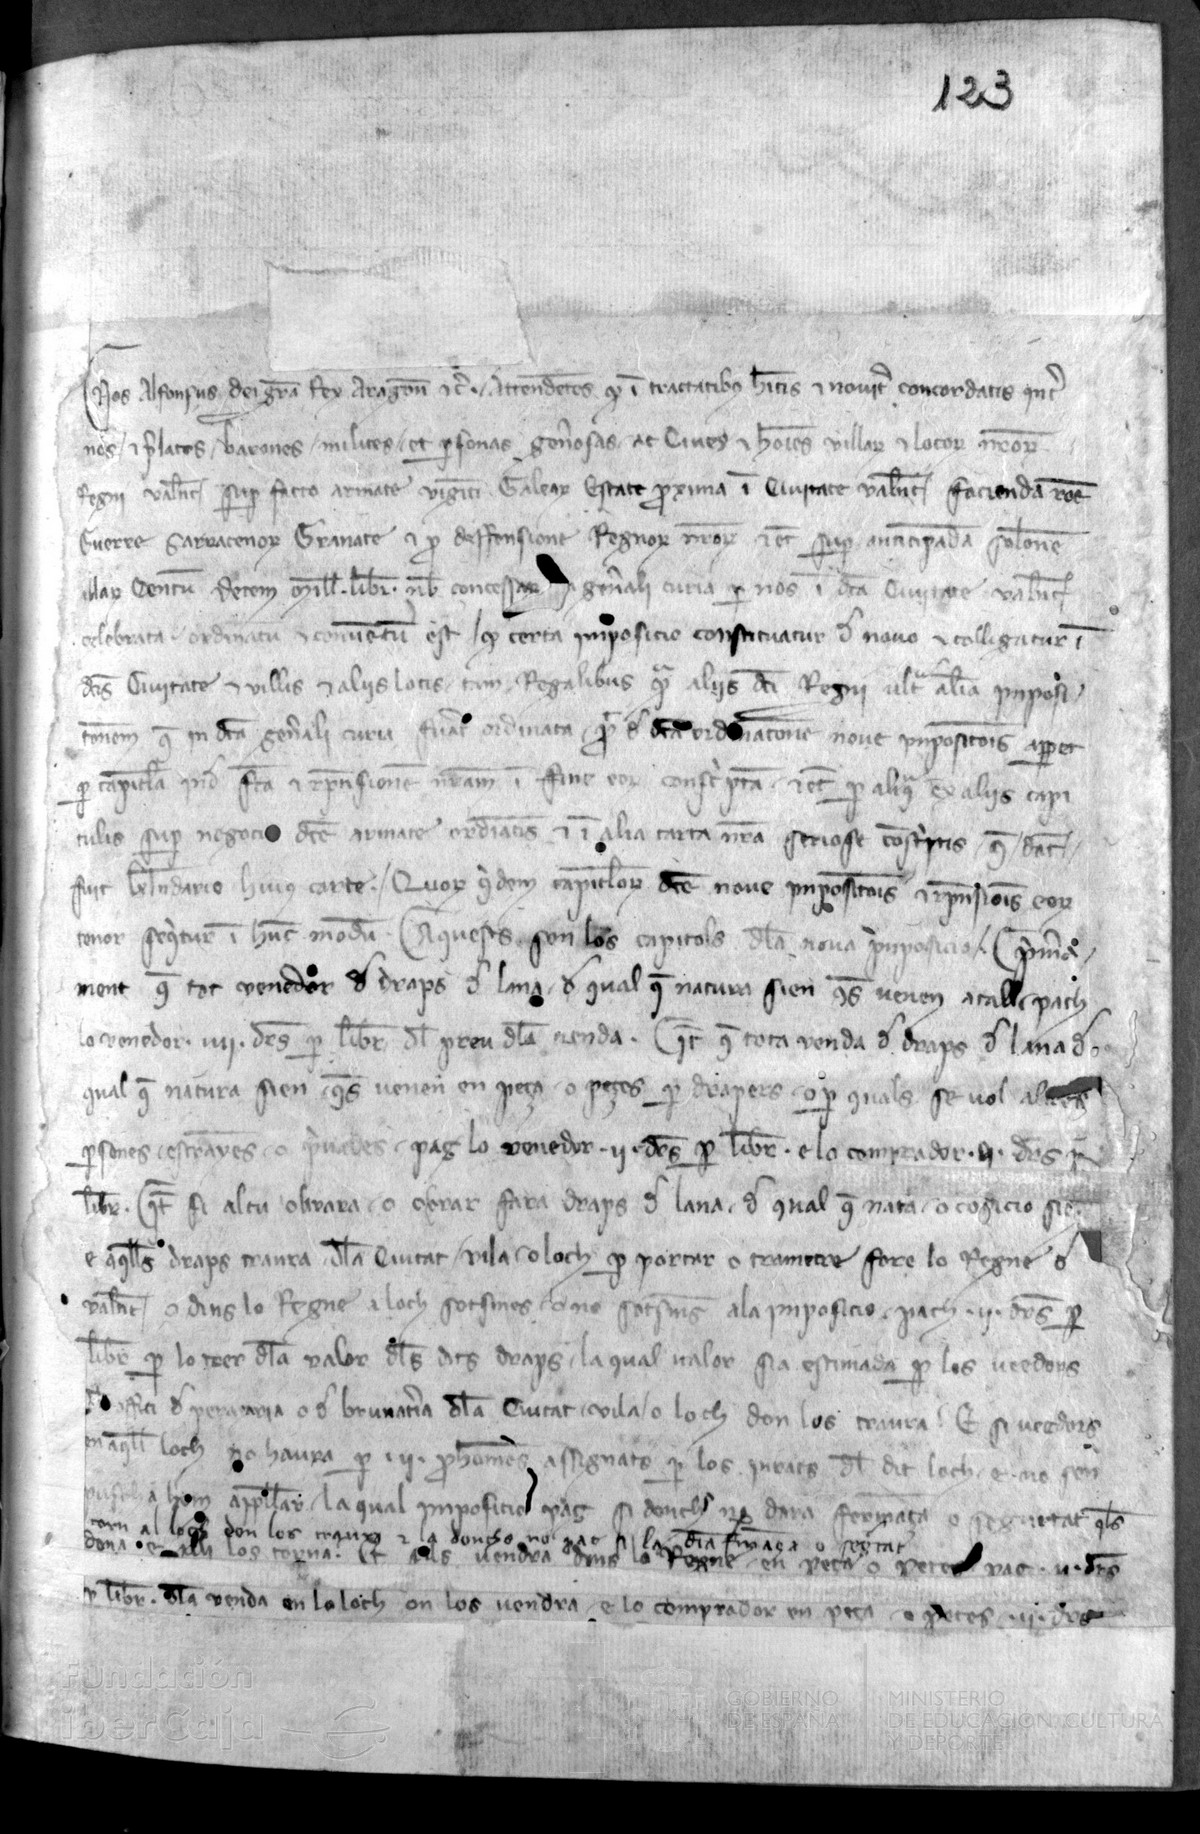 123
Nos Alfonsus dei gra Rex Aragon &c. Attendetes qd i tractatibus hitis & nouit concordatis int
nos & plates barones milites et psonas genosas ac Ciues & hoies villar & locor nror
Regni valent sup facto armate viginti Galear Estate proxima i Ciuitate valent facienda roe
Guerre Sarracenor Granate & p deffensione Regnor nror & et sup anticipada solone
illar Centu decem mill libr nb concessar genali curia p nos i dca Ciuitate valent
celebrata ordinatu & conuetu est qd certa imposicio constituatur d nouo & colligatur i
dcis Ciuitate & villis & aliis locis tam Regalibus qua aliis dci Regni ult alia imposi
tonem q in dca genali curia fuat ordinata pt d dca ordinacone noue impositois apet
p capitla ind fca & respsione nram i fine eor conscpta & et p aliq ex aliis capi
tulis sup negocio dce armate ordiatis & i alia carta nra seriose coscptis q dat
fuit klendario huius carte Quor qdem capitlor dce noue impositois & respnsiois eor
tenor seqtur i hunc modu Aquests son los capitols dla noua imposicio pmera
ment q tot venedor d draps d lana d qual q natura sien qs venen a tall pach
lo venedor iiii drs p libr dl preu dla venda It q tota venda d draps d lana d
qual q natura sien qs venen en peça o peçes p drapers o p quals se vol altres
psones estranyes o puades pag lo venedor ii drs p libr e lo comprador ii drs p
libr It si alcu obrara o obrar fara draps d lana d qual q nata o cogicio sie
e aqlls draps traura dla Ciutat vila o loch p portar o trametre fore lo Regne d
valent o dins lo Regne a loch sotsmes o no sotsmes a la imposicio pach ii drs p
libr p lo trer dla valor dls dits draps la qual valor sia estimada p los veedors
offici d peraria o d brunatia dla Ciutat vila o loch don los traura E si veedors
en aqll loch no haura p iii phomes assignats p los jurats dl dit loch e no sen
hom apllar la qual imposicio pag si donchs no dara fermaça o segurtat qls
torn al loch don los traura & la donchs no pac si la dia fmaça o segtat
dona e alli los torna Et sils vendra dins lo Regne en peça o peces pac ii drs
p libr dla venda en lo loch on los vendra e lo comprador en peça o peces ii drs
Fundación
iberCaja
GOBIERNO
DE ESPAÑA
MINISTERIO
DE EDUCACIÓN, CULTURA
Y DEPORTE